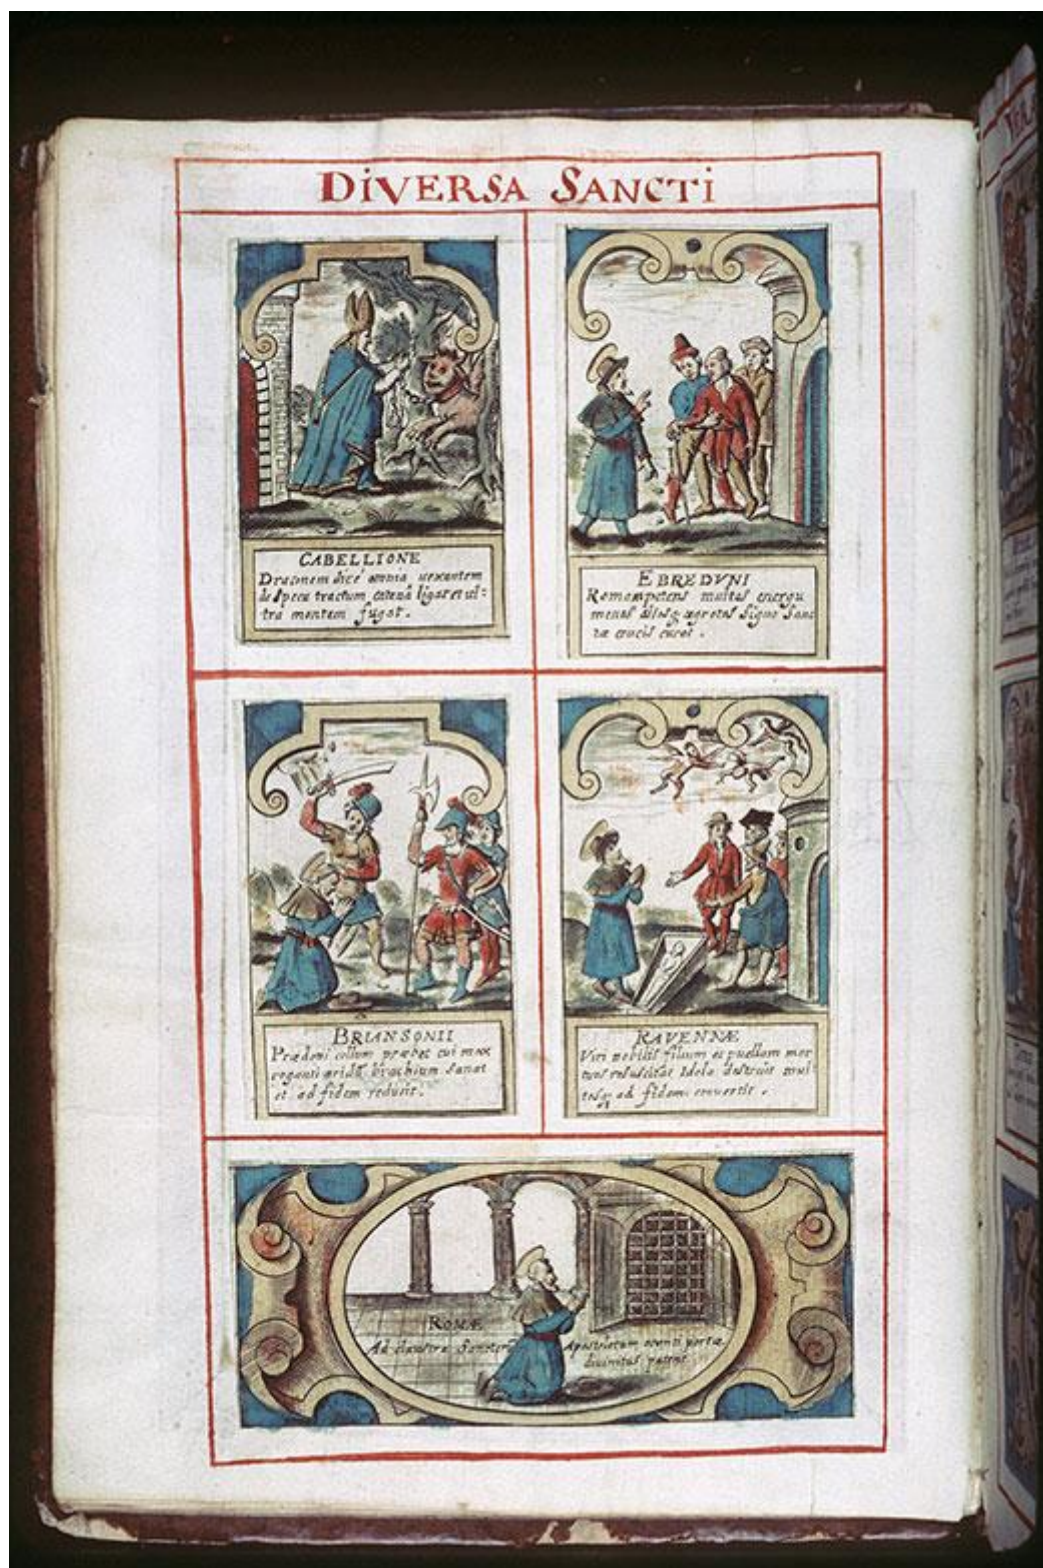 DiVERSA SANCTi
CABELLIONE
Draconem hice omnia vexantem
de specu tractum catena ligat et ul:
tra montem fugat.
EBREDVNI
Romam petens multos energu
menos aegrotos signo Sanc
tæ crucis curat.
BRIANSONII
Prædoni collum præbet cui mox
roganti arid brachium sanat
et ad fidem reducit.
RAVENNÆ
Viri nobilis filium et puellam mor
tuos resuscitat Idola destruit mul
tosq ad fidem convertit.
ROMÆ
Ad claustra Sanctor Apostolorum
divinitus patent